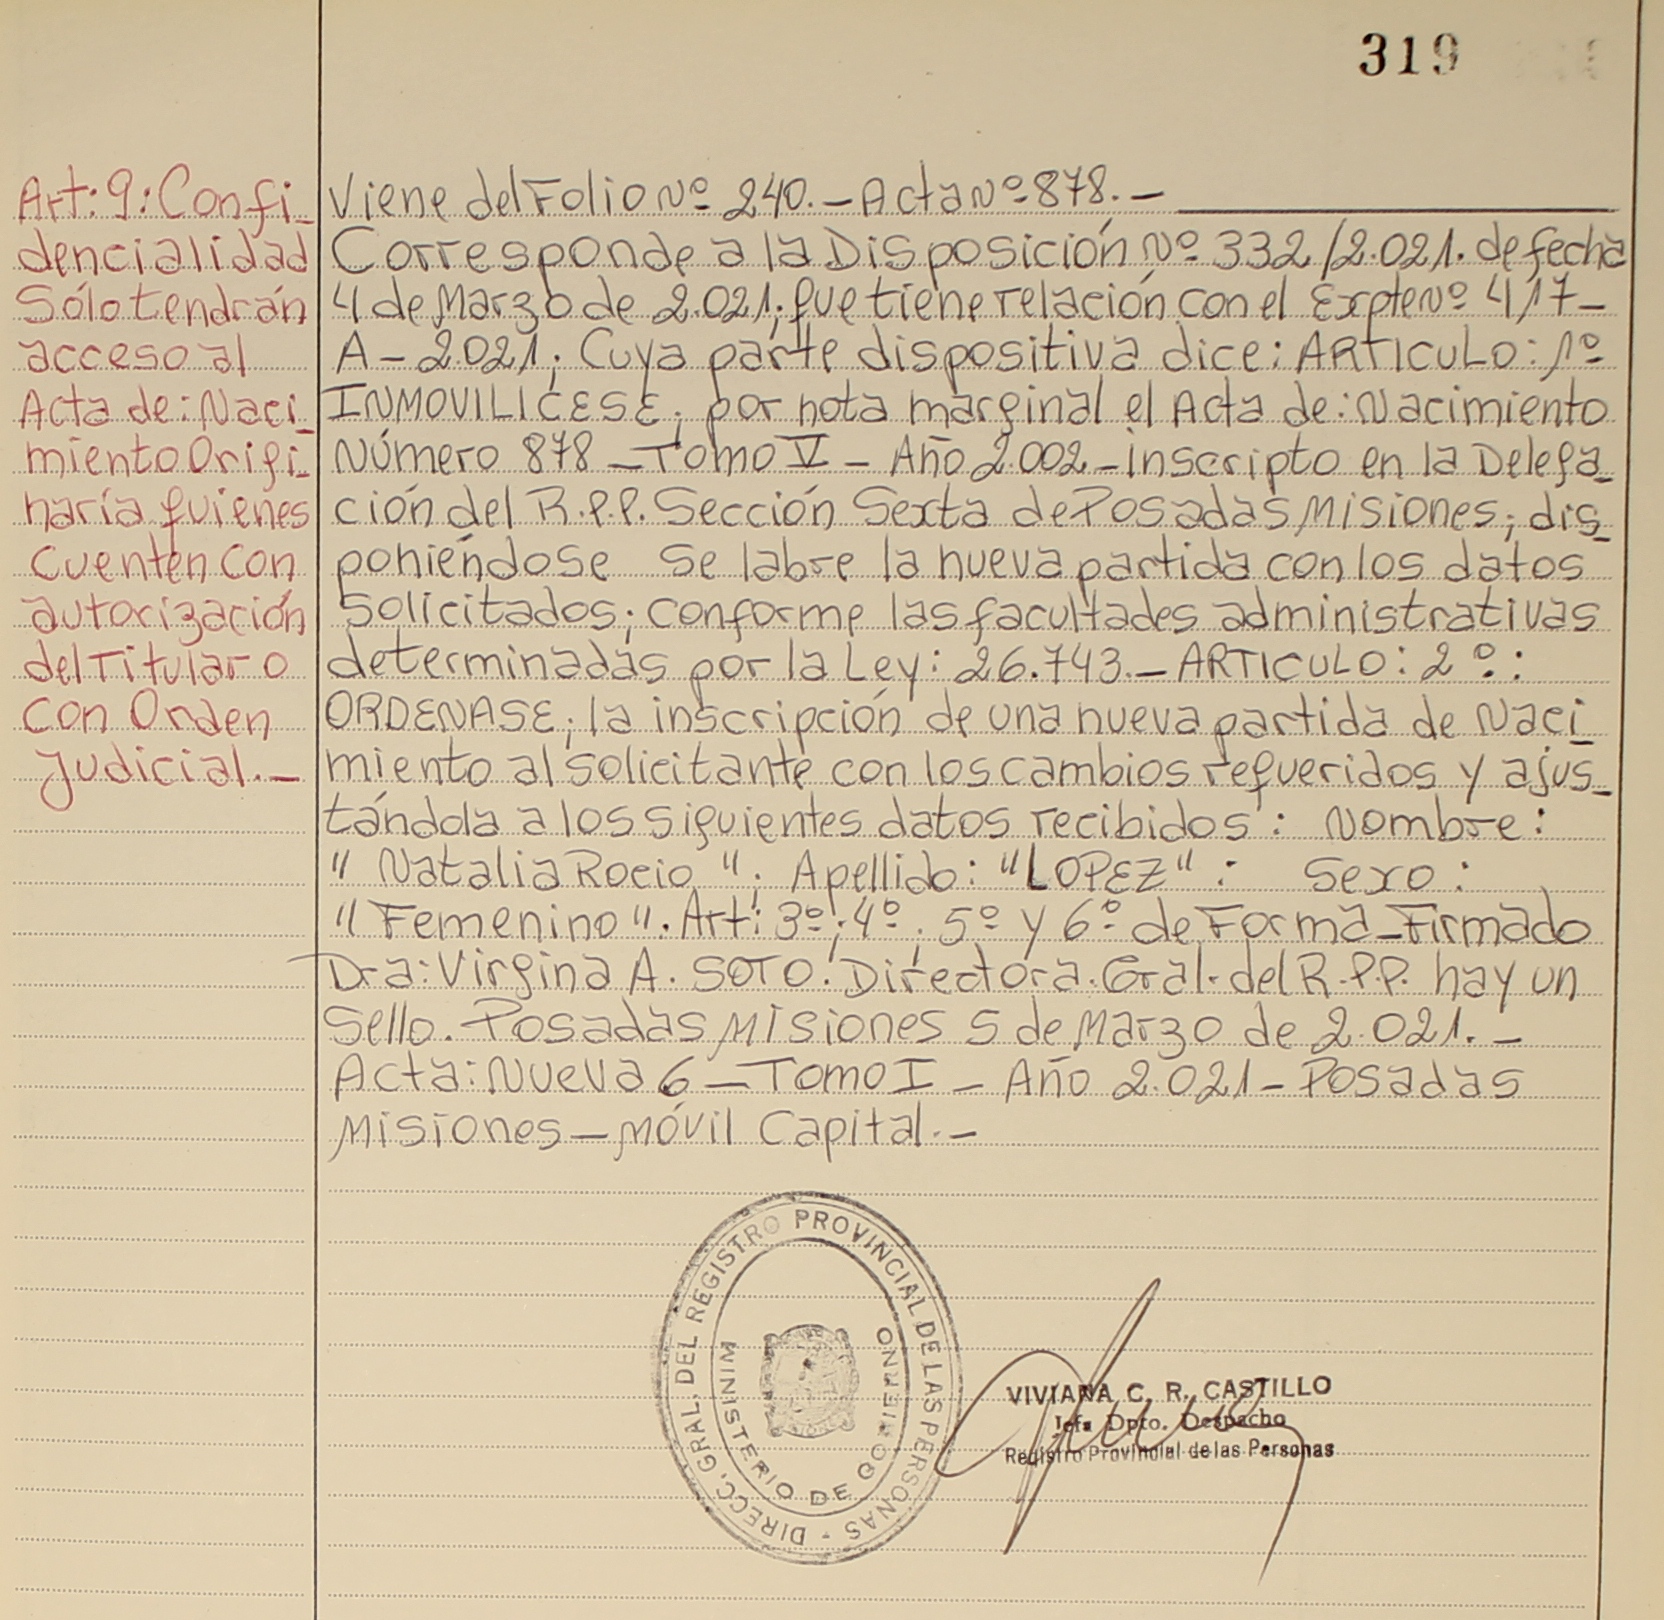 319
Art: 9: Confi_
dencialidad
Sólo tendrán
acceso al
Acta de: Naci_
miento Origi_
naría quienes
Cuenten con
autorización
del Titular o
Con Orden
Judicial.—
Viene del Folio Nº 240.— Acta Nº 878.—
Corresponde a la Disposición Nº 332/2.021. de fecha
4 de Marzo de 2.021; que tiene relación con el Expte Nº 417—
A—2.021; Cuya parte dispositiva dice: ARTICULO: 1º
INMOVILICESE; por nota marginal el Acta de: Nacimiento
Número 878—Tomo V—Año 2.002—inscripto en la Delega_
ción del R.P.P. Sección Sexta de Posadas Misiones; dis_
poniéndose se labre la nueva partida con los datos
Solicitados; conforme las facultades administrativas
determinadas por la Ley: 26.743.—ARTICULO: 2º:
ORDENASE; la inscripción de una nueva partida de Naci_
miento al solicitante con los cambios requeridos y ajus_
tándola a los siguientes datos recibidos: Nombre:
"Natalia Rocio"; Apellido: "LOPEZ": Sexo:
"Femenino". Art: 3º; 4º; 5º y 6º de Forma—Firmado
Dra: Virgina A. SOTO. Directora. Gral. del R.P.P. hay un
Sello. Posadas Misiones 5 de Marzo de 2.021.—
Acta: Nueva 6—Tomo I—Año 2.021—Posadas
Misiones—Móvil Capital.—
DIRECC. GRAL. DEL REGISTRO PROVINCIAL DE LAS PERSONAS -
MINISTERIO DE GOBIERNO
VIVIANA C. R. CASTILLO
Jefa Dpto. Despacho
Registro Provincial de las Personas